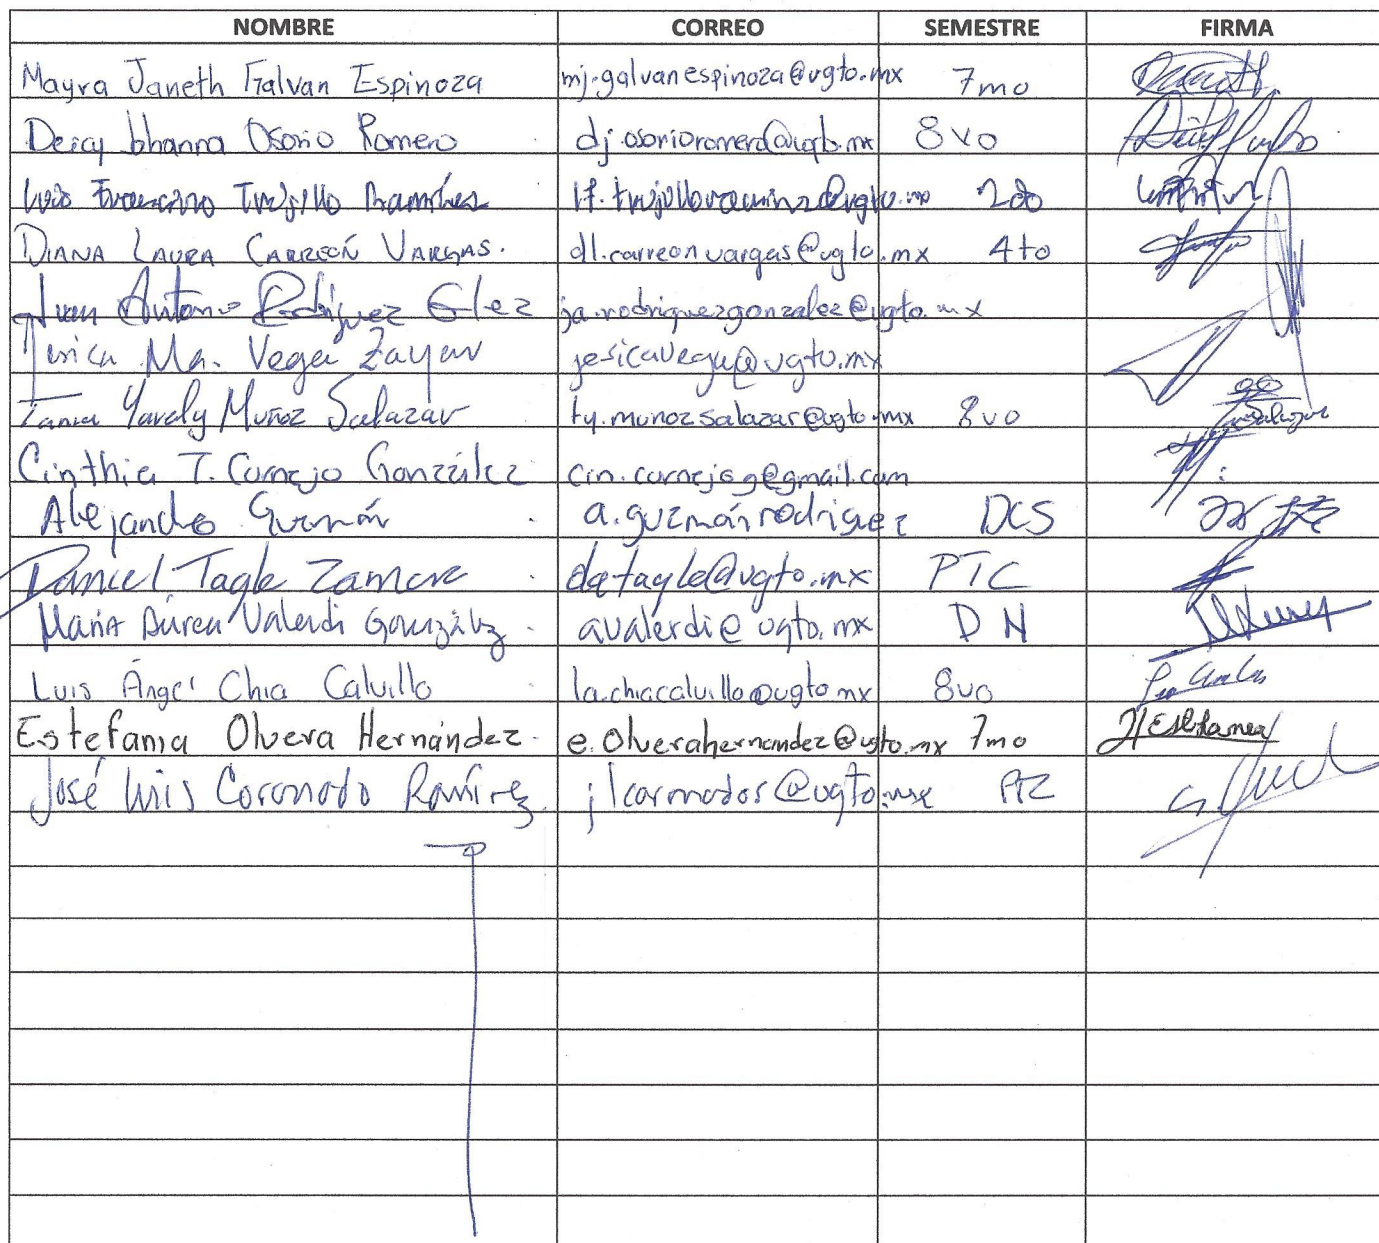 NOMBRE CORREO SEMESTRE FIRMA
Mayra Janeth Galvan Espinoza mj.galvanespinoza@ugto.mx 7mo
Deicy Jhanna Osorio Romero dj.osorioromero@ugto.mx 8vo
Luis Francisco Trujillo Ramírez lf.trujilloramirez@ugto.mx 2do
DIANA LAURA CARREÓN VARGAS. dl.carreonvargas@ugto.mx 4to
Juan Antonio Rodríguez Glez ja.rodriguezgonzalez@ugto.mx
Jesica Ma. Vega Zayas jesicavega@ugto.mx
Tania Yaraly Muñoz Salazar ty.munozsalazar@ugto.mx 8vo
Cinthia T. Cornejo González cin.cornejog@gmail.com
Alejandro Guzmán a.guzmánrodriguez DCS
Daniel Tagle Zamora datagle@ugto.mx PTC
María Áurea Valerdi González avalerdi@ugto.mx DN
Luis Ángel Chia Calvillo la.chiacalvillo@ugto.mx 8vo
Estefania Olvera Hernández. e.olverahernandez@ugto.mx 7mo
José Luis Coronado Ramírez